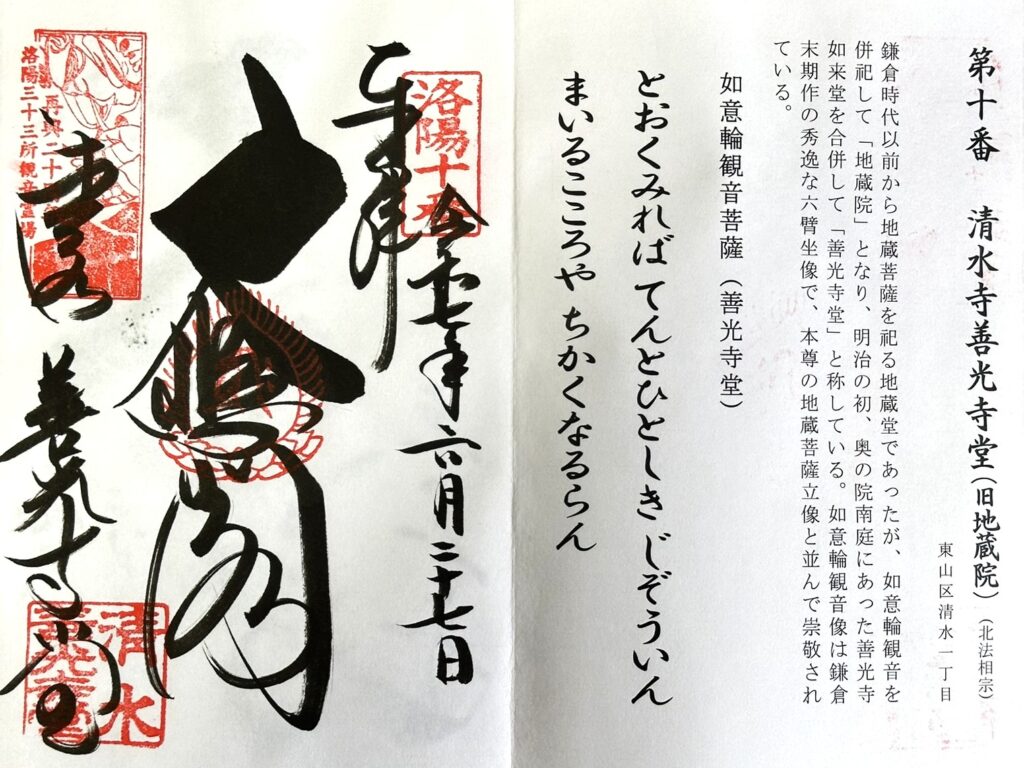 第十番　清水寺善光寺堂（旧地蔵院）（北法相宗）
東山区清水一丁目
鎌倉時代以前から地蔵菩薩を祀る地蔵堂であったが、如意輪観音を
併祀して「地蔵院」となり、明治の初、奥の院南庭にあった善光寺
如来堂を合併して「善光寺堂」と称している。如意輪観音像は鎌倉
末期作の秀逸な六臂坐像で、本尊の地蔵菩薩立像と並んで崇敬され
ている。
如意輪観音菩薩（善光寺堂）
とおくみれば てんとひとしき じぞういん
まいるこころや ちかくなるらん
奉拝
洛陽十番
令和七年六月二十七日
大悲閣
洛陽三十三所観音霊場
再興二十
清水
善光寺堂
清水
善光寺堂